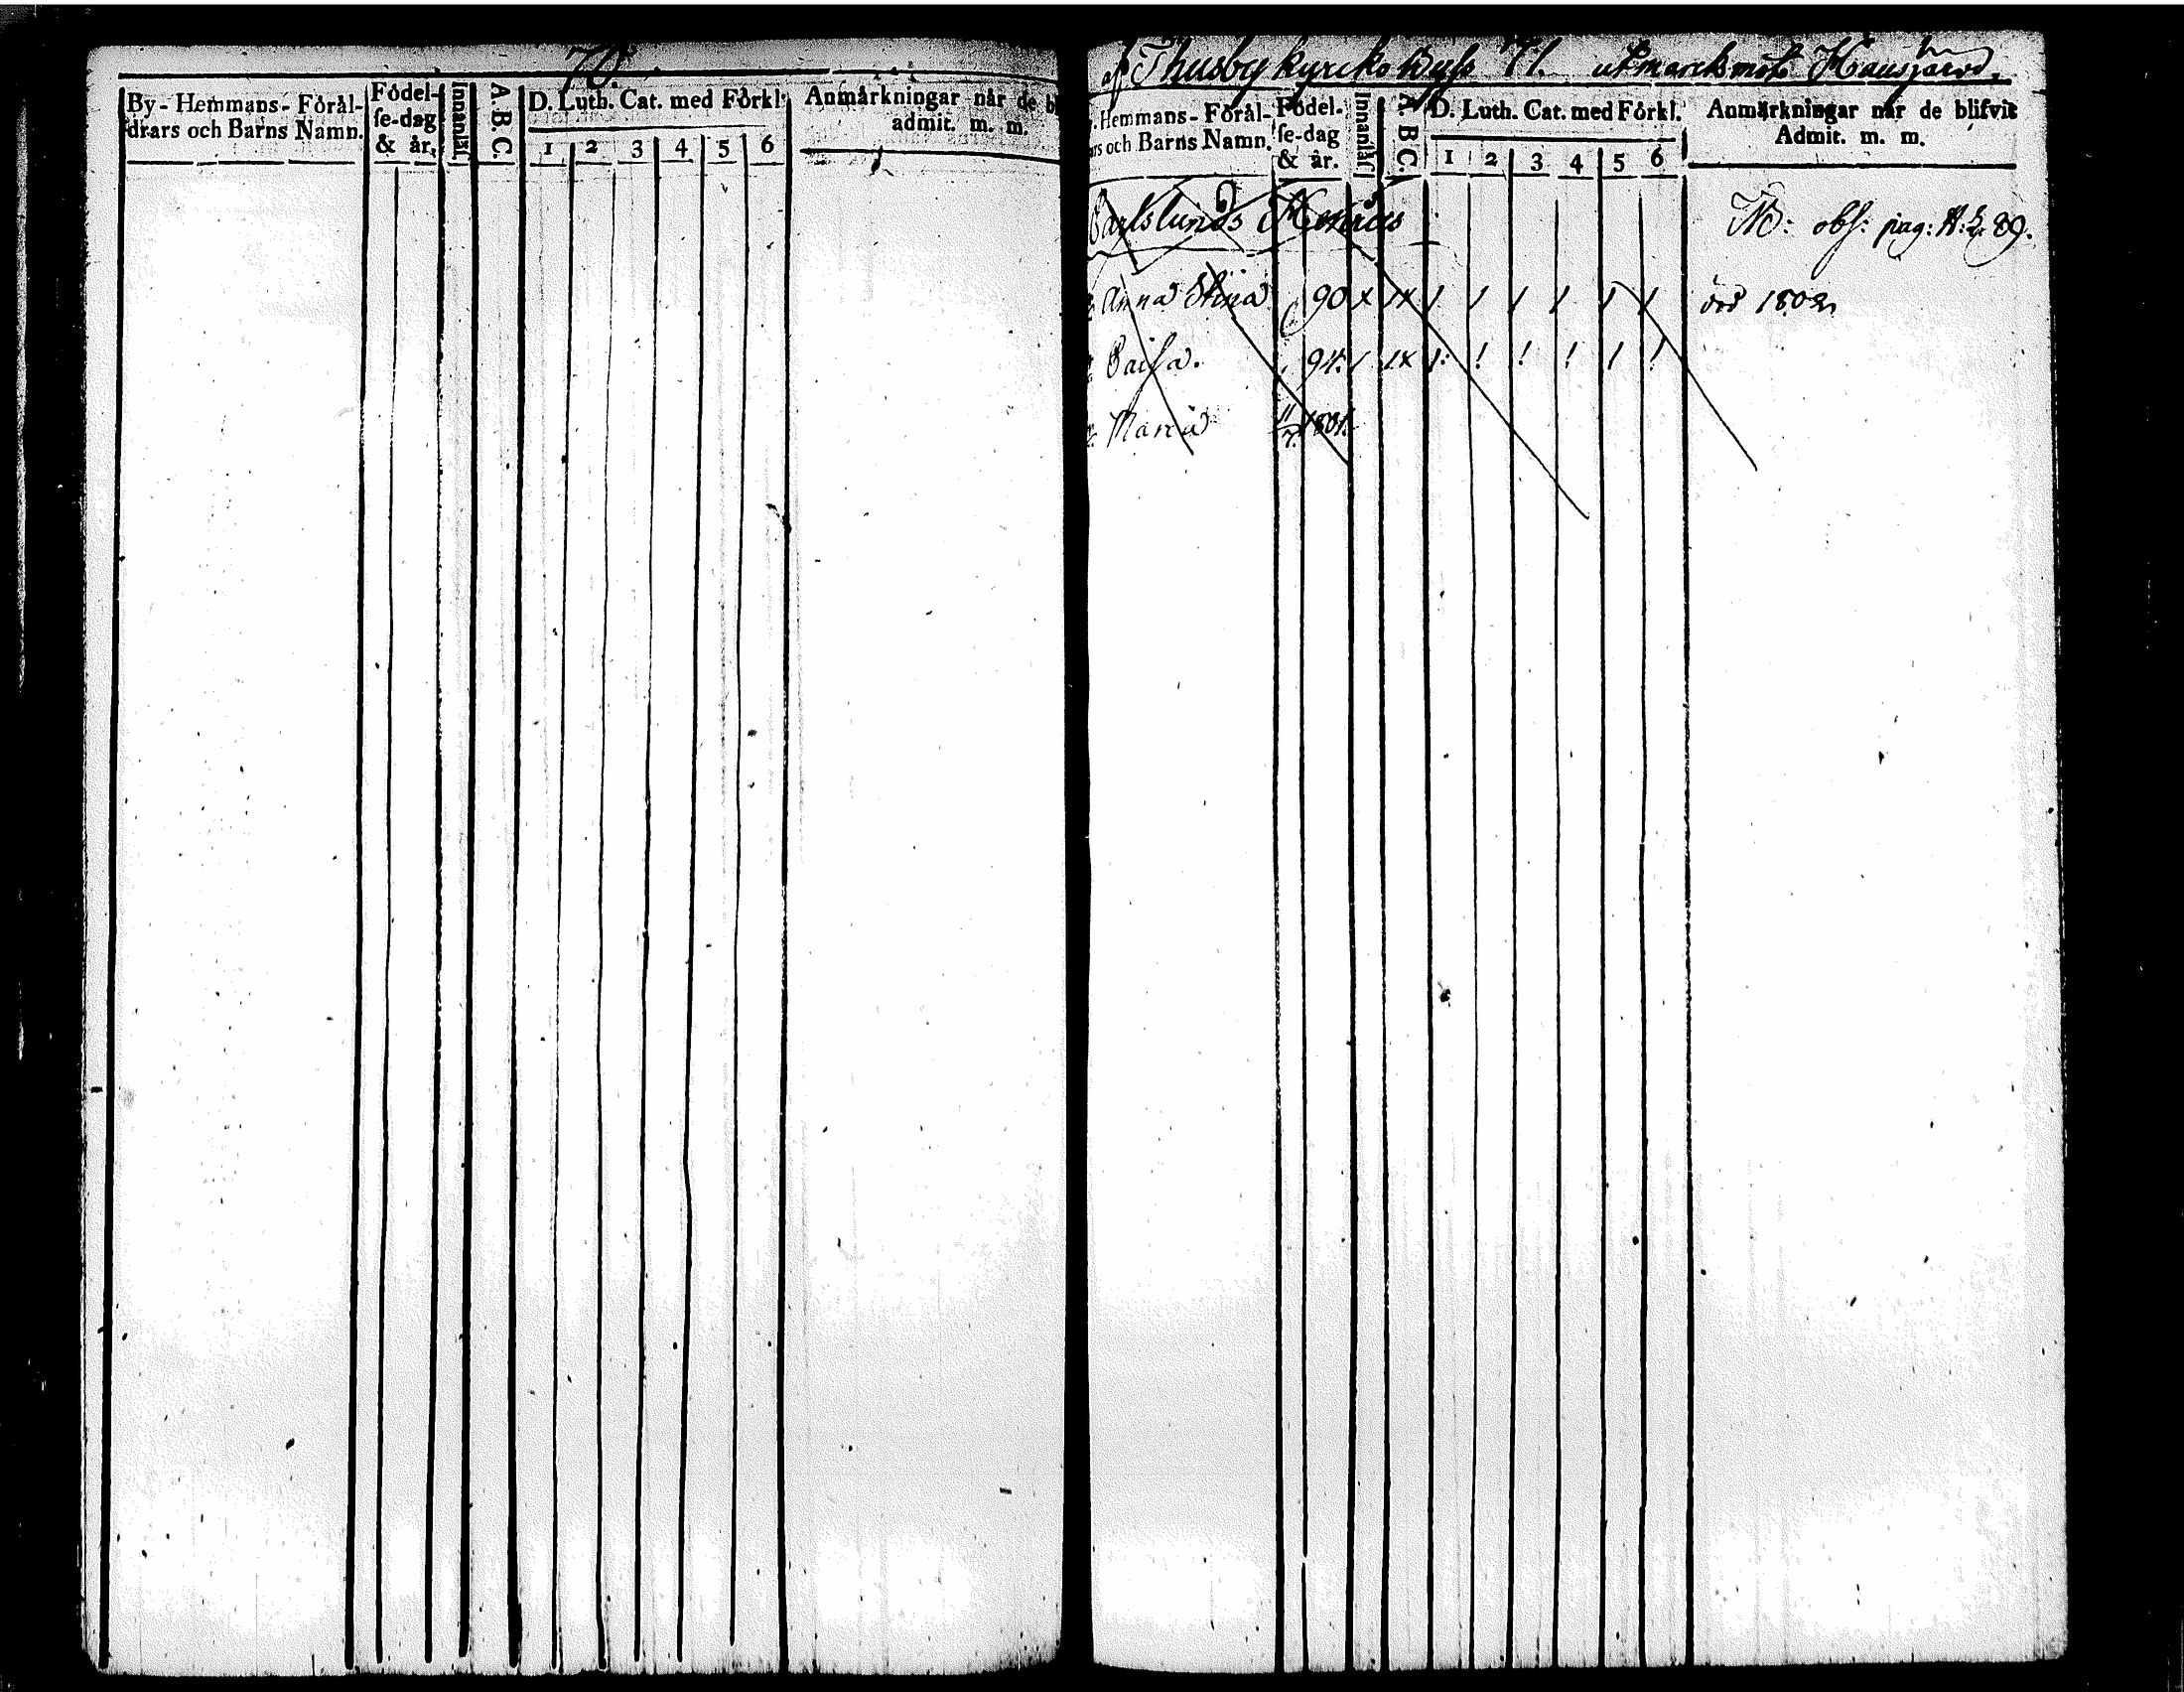 70.
By-Hemmans-Förål-
drars och Barns Namn.
Födel-
se-dag
& år.
Innanläs.
A.B.C.
D. Luth. Cat. med Förkl.
1 2 3 4 5 6
Anmårkningar når de b
admit. m. m.
af Thusby kyrcko by 71. utmarck mot Hausjärvi
Hemmans-Förål-
rs och Barns Namn.
Födel-
se-dag
& år.
Innanläs
A. B C.
D. Luth. Cat. med Förkl.
1 2 3 4 5 6
Anmärkningar når de blifvit
Admit. m. m.
Carlslunds
NB: obs: pag: 89.
Anna Stina 90 x 1x 1 1 1 1 1 1 död 1802
Caisa. 94. 1 1x 1: ! ! ! 1 !
Maria 11/7. 1801.